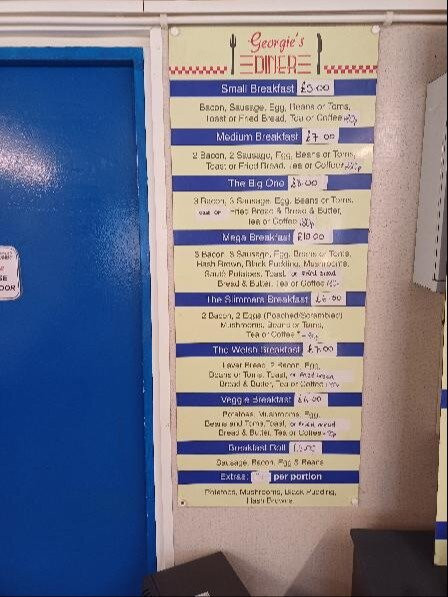 Georgie's
DINER
Small Breakfast £5.00
Bacon, Sausage, Egg, Beans or Toms,
Toast or Fried Bread, Tea or Coffee
Medium Breakfast £7.00
2 Bacon, 2 Sausage, Egg, Beans or Toms,
Toast or Fried Bread, Tea or Coffee
The Big One £8.00
3 Bacon, 3 Sausage, Egg, Beans or Toms,
Fried Bread & Bread & Butter,
Tea or Coffee
Mega Breakfast £10.00
Bacon, Sausage, Egg, Beans or Toms,
Hash Brown, Black Pudding, Mushrooms,
Sauté Potatoes, Toast, or fried bread
Bread & Butter, Tea or Coffee
The Slimmers Breakfast £6.00
2 Bacon, 2 Eggs (Poached/Scrambled)
Mushrooms, Beans or Toms,
Tea or Coffee
The Welsh Breakfast
Laver Bread, 2 Bacon, Egg,
Beans or Toms, Toast, or fried bread
Bread & Butter, Tea or Coffee
Veggie Breakfast
Potatoes, Mushrooms, Egg,
Beans and Toms, Toast, or fried bread
Bread & Butter, Tea or Coffee
Breakfast Roll
Sausage, Bacon, Egg & Beans
Extras: per portion
Potatoes, Mushrooms, Black Pudding,
Hash Browns